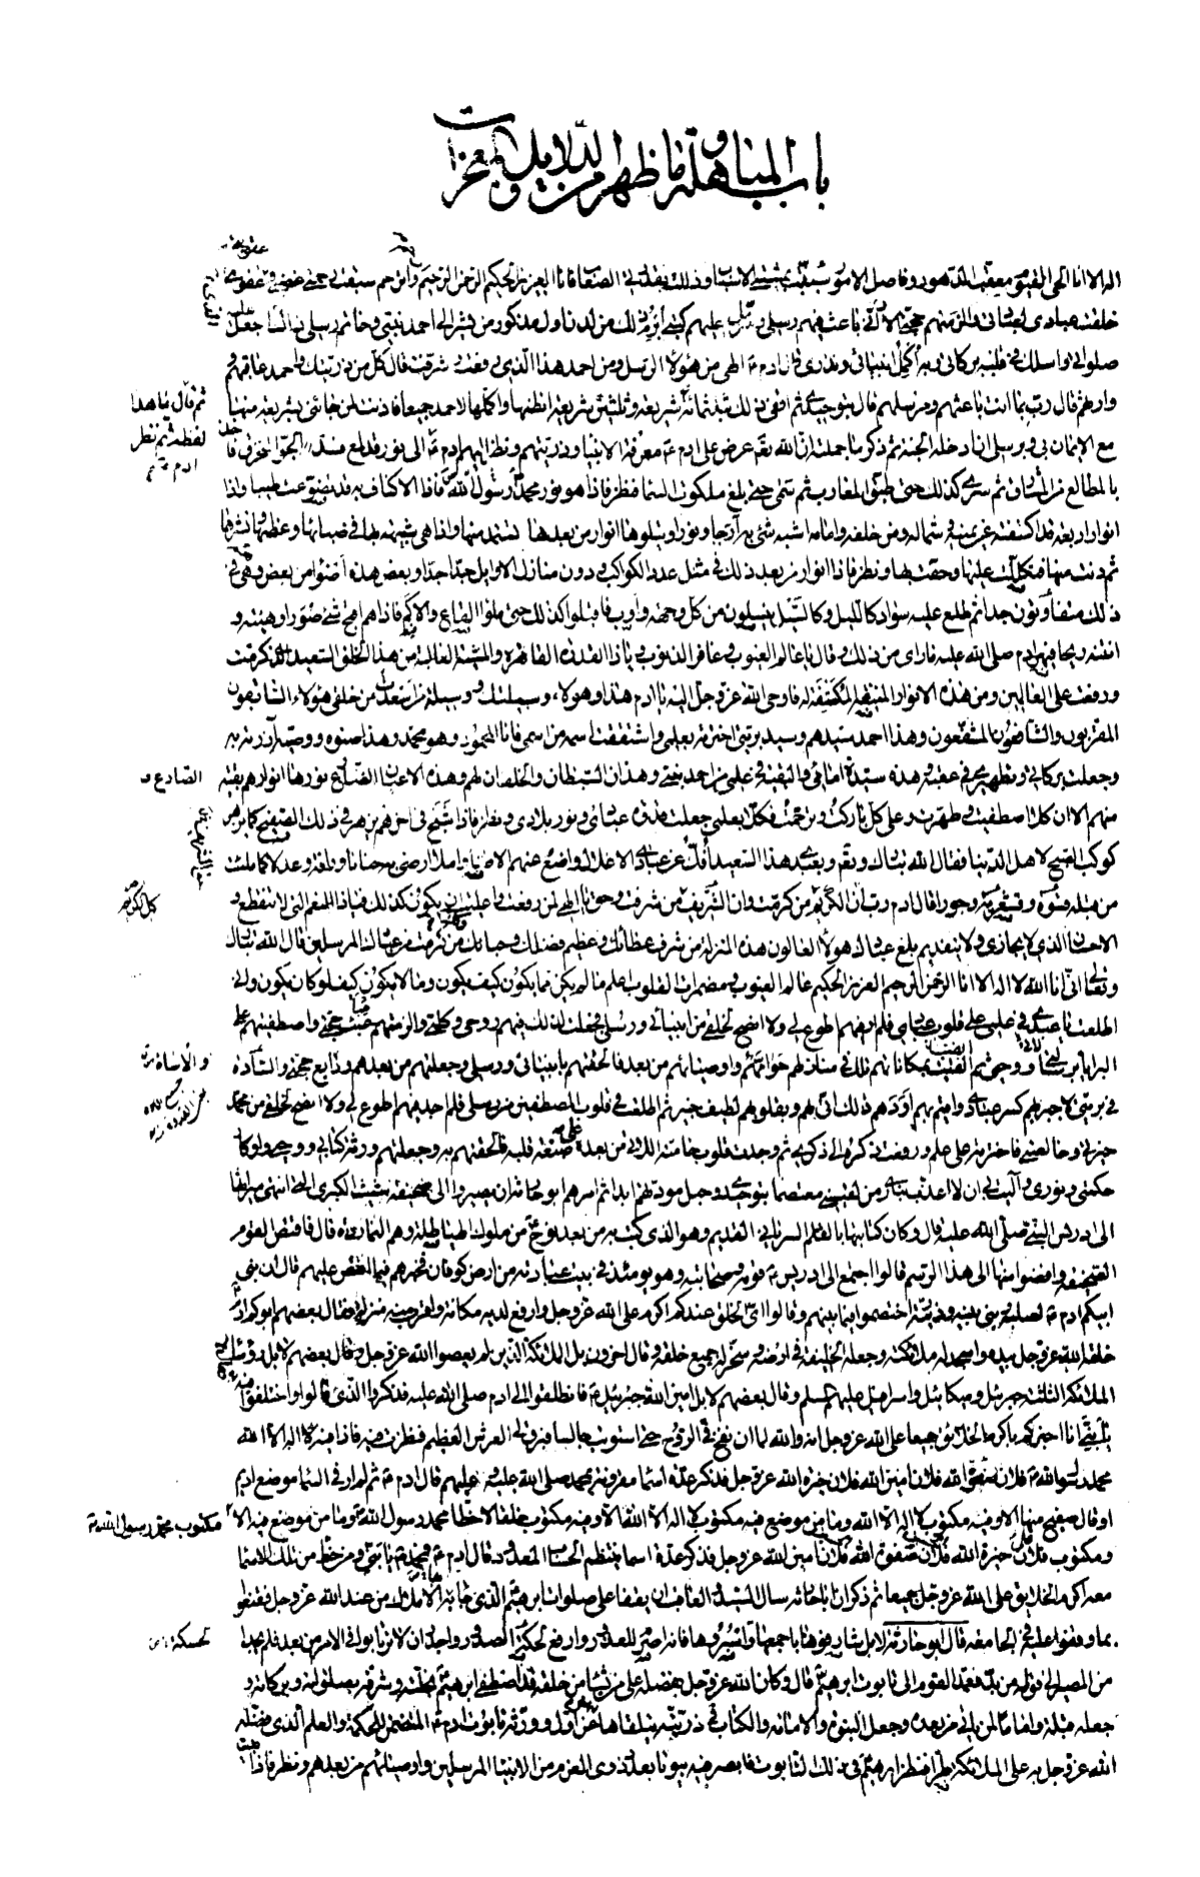 باب المباهلة وما ظهر من الدلايل والمعجزات
اله الا انا الحي القيوم معقب الدهور وفاصل الامور سببت بمشيتي الاسباب وذللت بقدرتي الصعاب فانا العزيز الحكيم الرحمن الرحيم وارحم سبقت رحمتي غضبي وعفوي
عقوبتي
خلقت عبادي لعبادتي والزمتهم حجتي الا اني باعث فيهم رسلي ومنزل عليهم كتبي ابرم ذلك من لدن اول مذكور من بشر الى احمد نبيي وخاتم رسلي ذاك الذي اجعل عليه
صلواتي واسلك في قلبه بركاتي وبه اكمل انبيائي ونذري قال ادم ع الهي من هؤلاء الرسل ومن احمد هذا الذي رفعت وشرفت قال كل من ذريتك واحمد عاقبهم
وارثهم قال رب بما انت باعثهم ومرسلهم قال بتوحيدي ثم اقفي ذلك بثلثمائة شريعة وثلثين شريعة انظمها واكملها لاحمد جميعا فاذنت لمن جاءني بشريعة منها
مع الايمان بي وبرسلي ان ادخله الجنة ثم ذكر ما جملته ان الله تعالى عرض على ادم ع معرفة الانبيا وذريتهم ونظر اليهم ادم ع الى نور قد لمع فسد الجو المنخرق فاخذ
ثم قال ما هذا
لفظه ثم نظر
ادم ع ثم
بالمطالع من المشارق ثم سرى كذلك حتى طبق المغارب ثم سمى حتى بلغ ملكوت السما فنظر فاذا هو نور محمد رسول الله ص فاذا الاكناف به قد تضوعت طيبا واذا
انوار اربعة قد اكتنفته عن يمينه وشماله ومن خلفه وامامه اشبه شئ به ارجا ونورا ويتلوها انوار من بعدها تستمد منها واذا هي شبيهة بها في ضيائها وعظمها ونشرها
ثم دنت منها فتكللت عليها وحفت بها ونظر فاذا انوار من بعد ذلك في مثل عدد الكواكب ودون منازل الاوايل جدا جدا وبعض هذه اضوا من بعض وهي في
ذلك متفاوتون جدا ثم طلع عليه سواد كالليل وكالسيل ينسلون من كل وجهة واوب فاقبلوا كذلك حتى ملؤا القاع والاكم فاذا هم اقبح شئ صورا وهيئة و
انتنه ريحا فبهر ادم صلى الله عليه ما راى من ذلك وقال يا عالم الغيوب وغافر الذنوب ويا ذا القدرة القاهرة والمشية الغالبة من هذا الخلق السعيد الذي كرمت
ورفعت على العالمين ومن هذه الانوار المنيفة المكتنفة له فاوحى الله عز وجل اليه يا ادم هذا وهؤلاء وسيلتك ووسيلة من اسعدت من خلقي هؤلاء السابقون
المقربون والشافعون المشفعون وهذا احمد سيدهم وسيد بريتي اخترته بعلمي واشتققت اسمه من اسمي فانا المحمود وهو محمد وهذا صنوه ووصيه آزرته به
وجعلت بركاتي وتطهيري في عقبه وهذه سيدة امائي والبقية في علمي من احمد نبيي وهذان السبطان والخلفان لهم وهذه الاعيان الضارع نورها انوارهم بقية
الصادع و
منهم الا ان كلا اصطفيت وطهرت وعلى كل باركت وترحمت فكلا بعلمي جعلت قدوة عبادي ونور بلادي ونظر فاذا شبح في اخرهم يزهر في ذلك الصفيح كما يزهر
كوكب الصبح لاهل الدنيا فقال الله تبارك وتعالى وبعبدي هذا السعيد افك عن عبادي الاغلال واضع عنهم الاصار واملا ارضي به حنانا ورافة وعدلا كما ملئت
من قبله قسوة وقشعرية وجورا قال ادم رب ان الكريم من كرمت وان الشريف من شرفت وحق يا الهي لمن رفعت واعليت ان يكون كذلك فياذا النعم التي لا تنقطع و
الاحسان الذي لا يجازى ولا ينفد بم بلغ عبادك هؤلاء العالون هذه المنزلة من شرف عطائك وعظيم فضلك وحبائك وكذلك من كرمت من عبادك المرسلين قال الله تبارك
وتعالى اني انا الله لا اله الا انا الرحمن الرحيم العزيز الحكيم عالم الغيوب ومضمرات القلوب اعلم ما لم يكن مما يكون كيف يكون وما لا يكون كيف لو كان يكون واني
اطلعت يا عبدي في علمي على قلوب عبادي فلم ار فيهم اطوع لي ولا انصح لخلقي من انبيائي ورسلي فجعلت لذلك فيهم روحي وكلمتي والزمتهم عبء حجتي واصطفيتهم على
البرايا برسالتي ووحيي ثم القيت بمكاناتهم تلك في منازلهم حوامهم واوصيائهم من بعد فالحقتهم بانبيائي ورسلي وجعلتهم من بعدهم ودايع حجتي والسادة
والاساة
في بريتي لاجبر بهم كسر عبادي واقيم بهم اودهم ذلك اني بهم وبقلوبهم لطيف خبير ثم اطلعت في قلوب المصطفين من رسلي فلم اجد فيهم اطوع لي ولا انصح لخلقي من محمد
خيرتي وخالصتي فاخترته على علم ورفعت ذكره الى ذكري ثم وجدت قلوب حامته اللاتي من بعده على صبغة قلبه فالحقتهم به وجعلتهم ورثة كتابي ووحيي واوكار
حكمتي ونوري واليت بي ان لا اعذب بناري من لقيني معتصما بتوحيدي وحبل مودتهم ابدا ثم امرهم ابو حارثة ان يصيروا الى صحيفة شيث الكبرى التي انتهى ميراثها
الى ادريس النبي صلى الله عليه قال وكان كتابتها بالقلم السرياني القديم وهو الذي كتب به من بعد نوح ع من ملوك الهياطلة وهم النماردة قال فاقتص القوم
الصحيفة وافضوا منها الى هذا الرسم قالوا اجتمع الى ادريس ع قومه وصحابته وهو يومئذ في بيت عبادته من ارض كوفان فخبرهم فيما اقتص عليهم قال ان بني
ابيكم ادم ع لصلبه وبني بنيه وذريته اختصموا فيما بينهم وقالوا اي الخلق عندكم اكرم على الله عز وجل وارفع لديه مكانة واقرب منه منزلة فقال بعضهم ابوكم ادم
خلقه الله عز وجل بيده واسجد له ملائكته وجعله الخليفة في ارضه وسخر له جميع خلقه وقال اخرون بل الملائكة الذين لم يعصوا الله عز وجل وقال بعضهم لا بل رؤساء
الملائكة الثلثة جبرئيل وميكائيل واسرافيل عليهم السلم وقال بعضهم لا بل امين الله جبرئيل ع فانطلقوا الى ادم صلى الله عليه فذكروا الذي قالوا واختلفوا فيه
يا بني انا اخبركم باكرم الخلائق جميعا على الله عز وجل انه والله لما ان نفخ في الروح حتى استويت جالسا فبرق لي العرش العظيم فنظرت فيه فاذا فيه لا اله الا الله
محمد رسول الله ص فلان صفوة الله فلان امين الله فلان خيرة الله عز وجل فذكر عدة اسما مقرونة بمحمد صلى الله عليه وعليهم قال ادم ع ثم لم ار في السما موضع اديم
او قال صفيح منها الا وفيه مكتوب لا اله الا الله وما من موضع فيه مكتوب لا اله الا الله الا وفيه مكتوب خلقا لا خطا محمد رسول الله ص وما من موضع فيه الا
مكتوب محمد رسول الله ص
ومكتوب فلان خيرة الله فلان صفوة الله فلان امين الله عز وجل فذكر عدة اسما ينتظم الحساب المعدود قال ادم ع فمحمد ص يا بني ومن خط من تلك الاسما
معه اكرم الخلائق على الله عز وجل جميعا ثم ذكر ان ابا حارثة سال السيد والعاقب ان يقفا على صلوات ابرهيم الذي جا به الاملاك من عند الله عز وجل فقنعوا
بما وقفوا عليه في الجامعة قال ابو حارثة لا بل شارفوها باجمعها واسبروها فانه اصرم للعذر وارفع لحكة الصدور واجدر ان لا ترتابوا في الامر من بعد فلم يجدا
لحسكة
من المصير الى قوله من بد فعمد القوم الى تابوت ابرهيم قال وكان الله عز وجل بفضله على من يشا من خلقه قد اصطفى ابرهيم بخلته وشرفه بصلواته وبركاته و
جعله قبلة واماما لمن ياتي من بعده وجعل النبوة والامامة والكتاب في ذريته يتلقاها اخر عن اول وورثه تابوت ادم ع المتضمن للحكمة والعلم الذي فضله
الله عز وجل به على الملائكة طرا فنظر ابرهيم في ذلك التابوت فابصر فيه بيوتا بعدد ذوي العزم من الانبيا المرسلين واوصيائهم من بعدهم ونظر فاذا